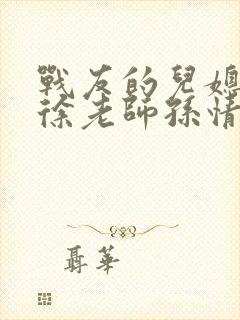 戰友的兒媳
徐老師孫情
聶華